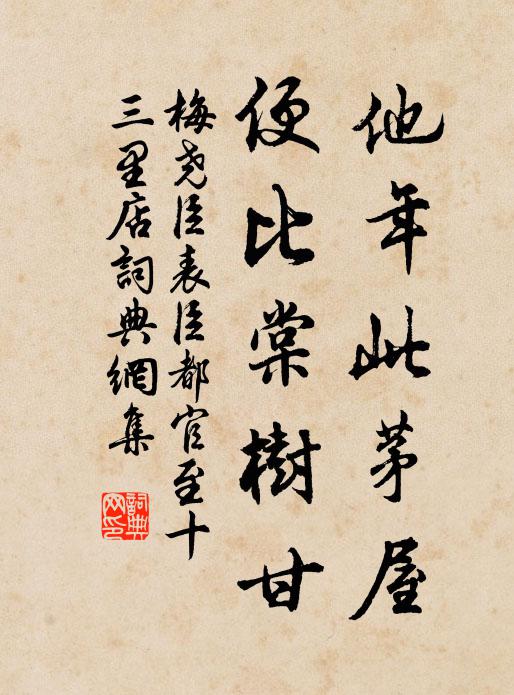 他年此茅屋
便比棠樹甘
梅堯臣表臣都官至十
三里店詞典網集
詞典網印